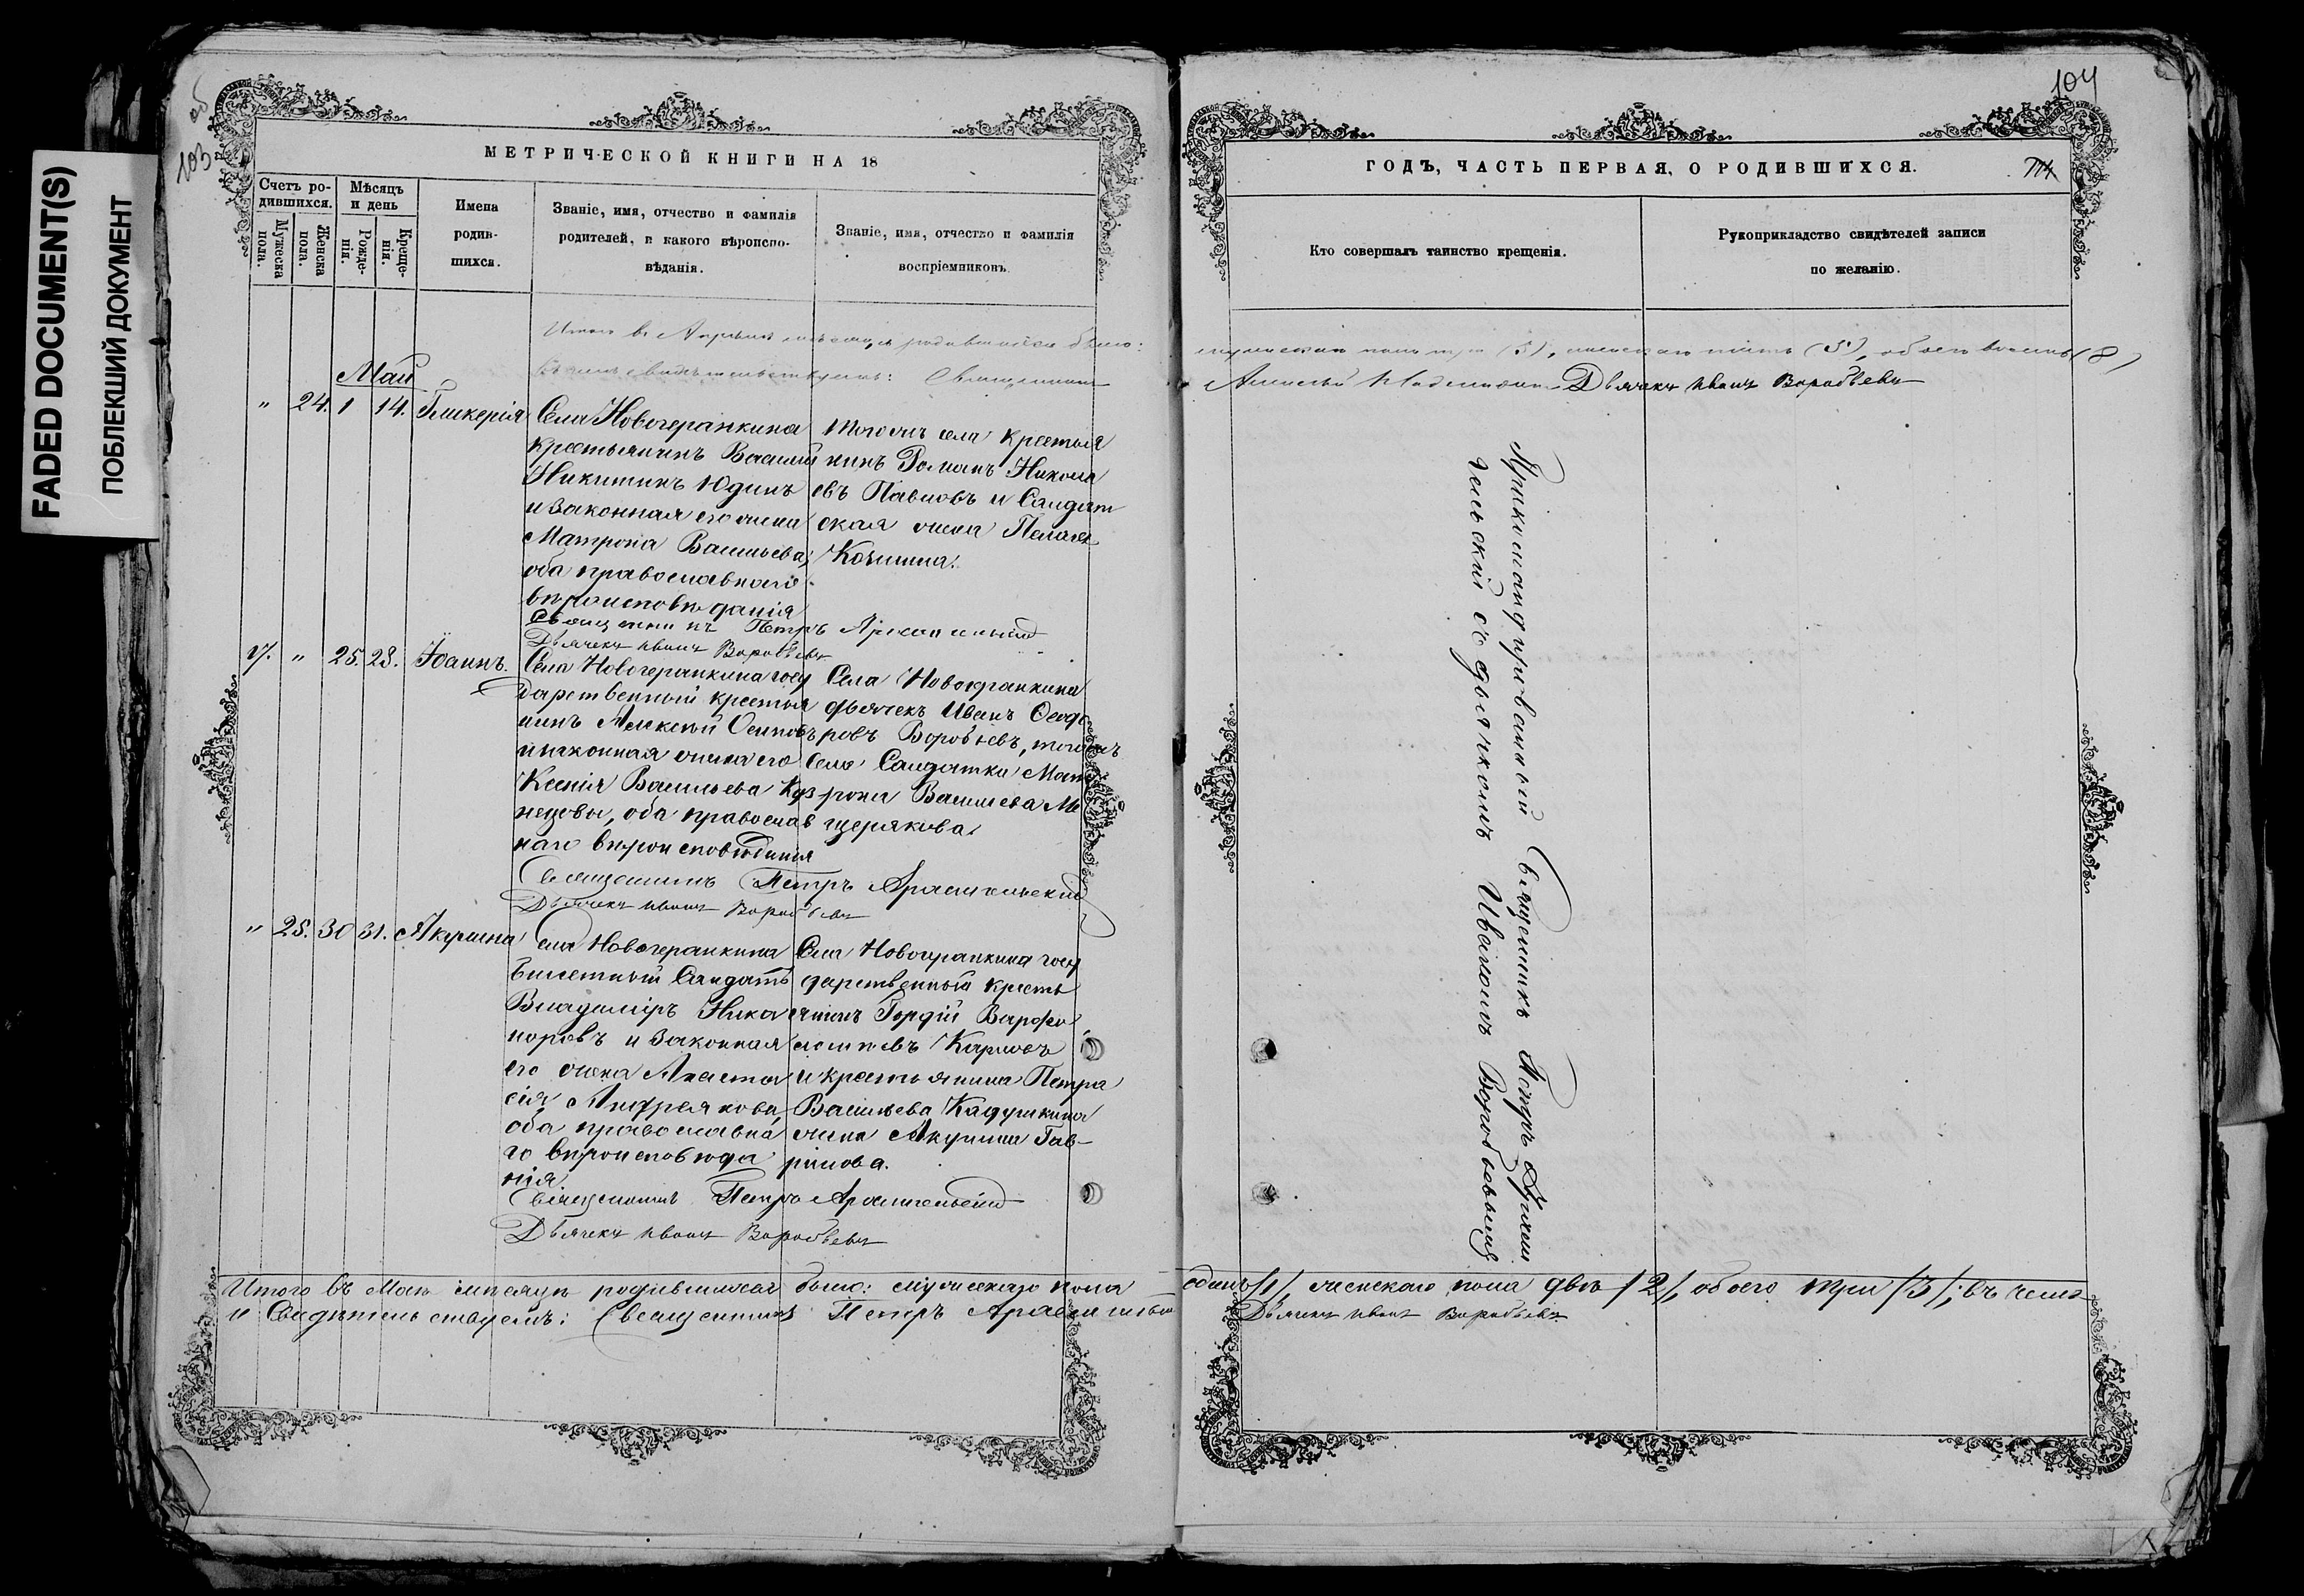 FADED DOCUMENT(S)
ПОБЛЕКШИЙ ДОКУМЕНТ
об
103
МЕТРИЧЕСКОЙ КНИГИ НА 18
Счетъ ро-
дившихся.
Мужеска
пола.
Женска
пола.
Мѣсяцъ
и день
Рожде-
нія.
Креще-
нія.
Имена
родив-
шихся.
Званіе, имя, отчество и фамилія
родителей, и какого вѣроиспо-
вѣданія.
Званіе, имя, отчество и фамилія
воспріемниковъ.
Итого въ Апрѣлѣ мѣсяцѣ родившихся было:
Въ чемъ свидѣтельствуемъ: Священникъ
Май
" 24. 1 14. Гликерія
Села Новогеранкина
крестьянинъ Василій
Никитинъ Юдинъ
и законная его жена
Матрона Васильева,
оба православнаго
вѣроисповѣданія
тогожъ села крестья
нинъ Романъ Никола
евъ Павловъ и Салдат
ская жена Пелагея
Священникъ Петръ Архангельскій
Дьячекъ Иванъ Воробьевъ
17. " 25. 28. Іоаннъ.
Села Новогеранкина госу
дарственный крестья
нинъ Алексѣй Осиповъ
и законная жена его
Ксенія Васильева Куз
нецовы, оба православ
наго вѣроисповѣданія
Села Новогеранкина
дьячекъ Иванъ Ѳеодо
ровъ Воробьевъ, тогожъ
села Салдатка Мат
рона Васильева Ме
щерякова.
Священникъ Петръ Архангельскій
Дьячекъ Иванъ Воробьевъ
" 25. 30 31. Акулина
Села Новогеранкина
билетный Салдатъ
Владиміръ Ника
норовъ и законная
его жена Анаста
сія Андреянова,
оба православна
го вѣроисповѣда
нія.
Села Новогеранкина госу
дарственный кресть
янинъ Гордій Варфо
ломѣевъ Карповъ
и крестьянина Петра
Васильева Кадушкина
жена Акулина Гав-
рилова.
Священникъ Петръ Архангельскій
Дьячекъ Иванъ Воробьевъ
Итого въ Маѣ мѣсяцѣ родившихся было: мужескаго пола
и Свидѣтельствуемъ: Священникъ Петръ Архангельскій
104
ГОДЪ, ЧАСТЬ ПЕРВАЯ, О РОДИВШИХСЯ.
Кто совершалъ таинство крещенія.
Рукоприкладство свидѣтелей записи
по желанію.
мужескаго пола три (3), женскаго пять (5), обоего восемь (8)
Алексѣй Дьячекъ Иванъ Воробьевъ
Прикомандированный Священникъ Петръ Арханг
гельскій съ дьячкомъ Иваномъ Воробьевымъ
одинъ /1/, женскаго пола двѣ /2/, обоего три /3/; въ чемъ
Дьячекъ Иванъ Воробьевъ